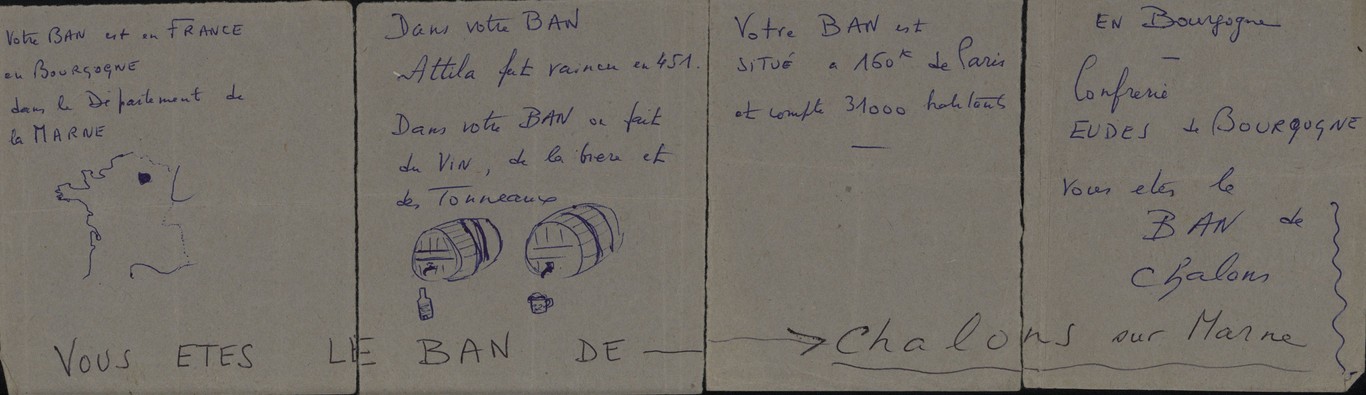 Votre BAN est en FRANCE
en BOURGOGNE
dans le Département de
la MARNE
Dans votre BAN
Attila fut vaincu en 451.
Dans votre BAN on fait
du VIN, de la biere et
des Tonneaux
Votre BAN est
SITUÉ a 160K de Paris
et compte 31000 habitants
EN Bourgogne
Confrerie
EUDES de BOURGOGNE
Vous etes le
BAN de
Chalons
VOUS ETES LE BAN DE Chalons sur Marne